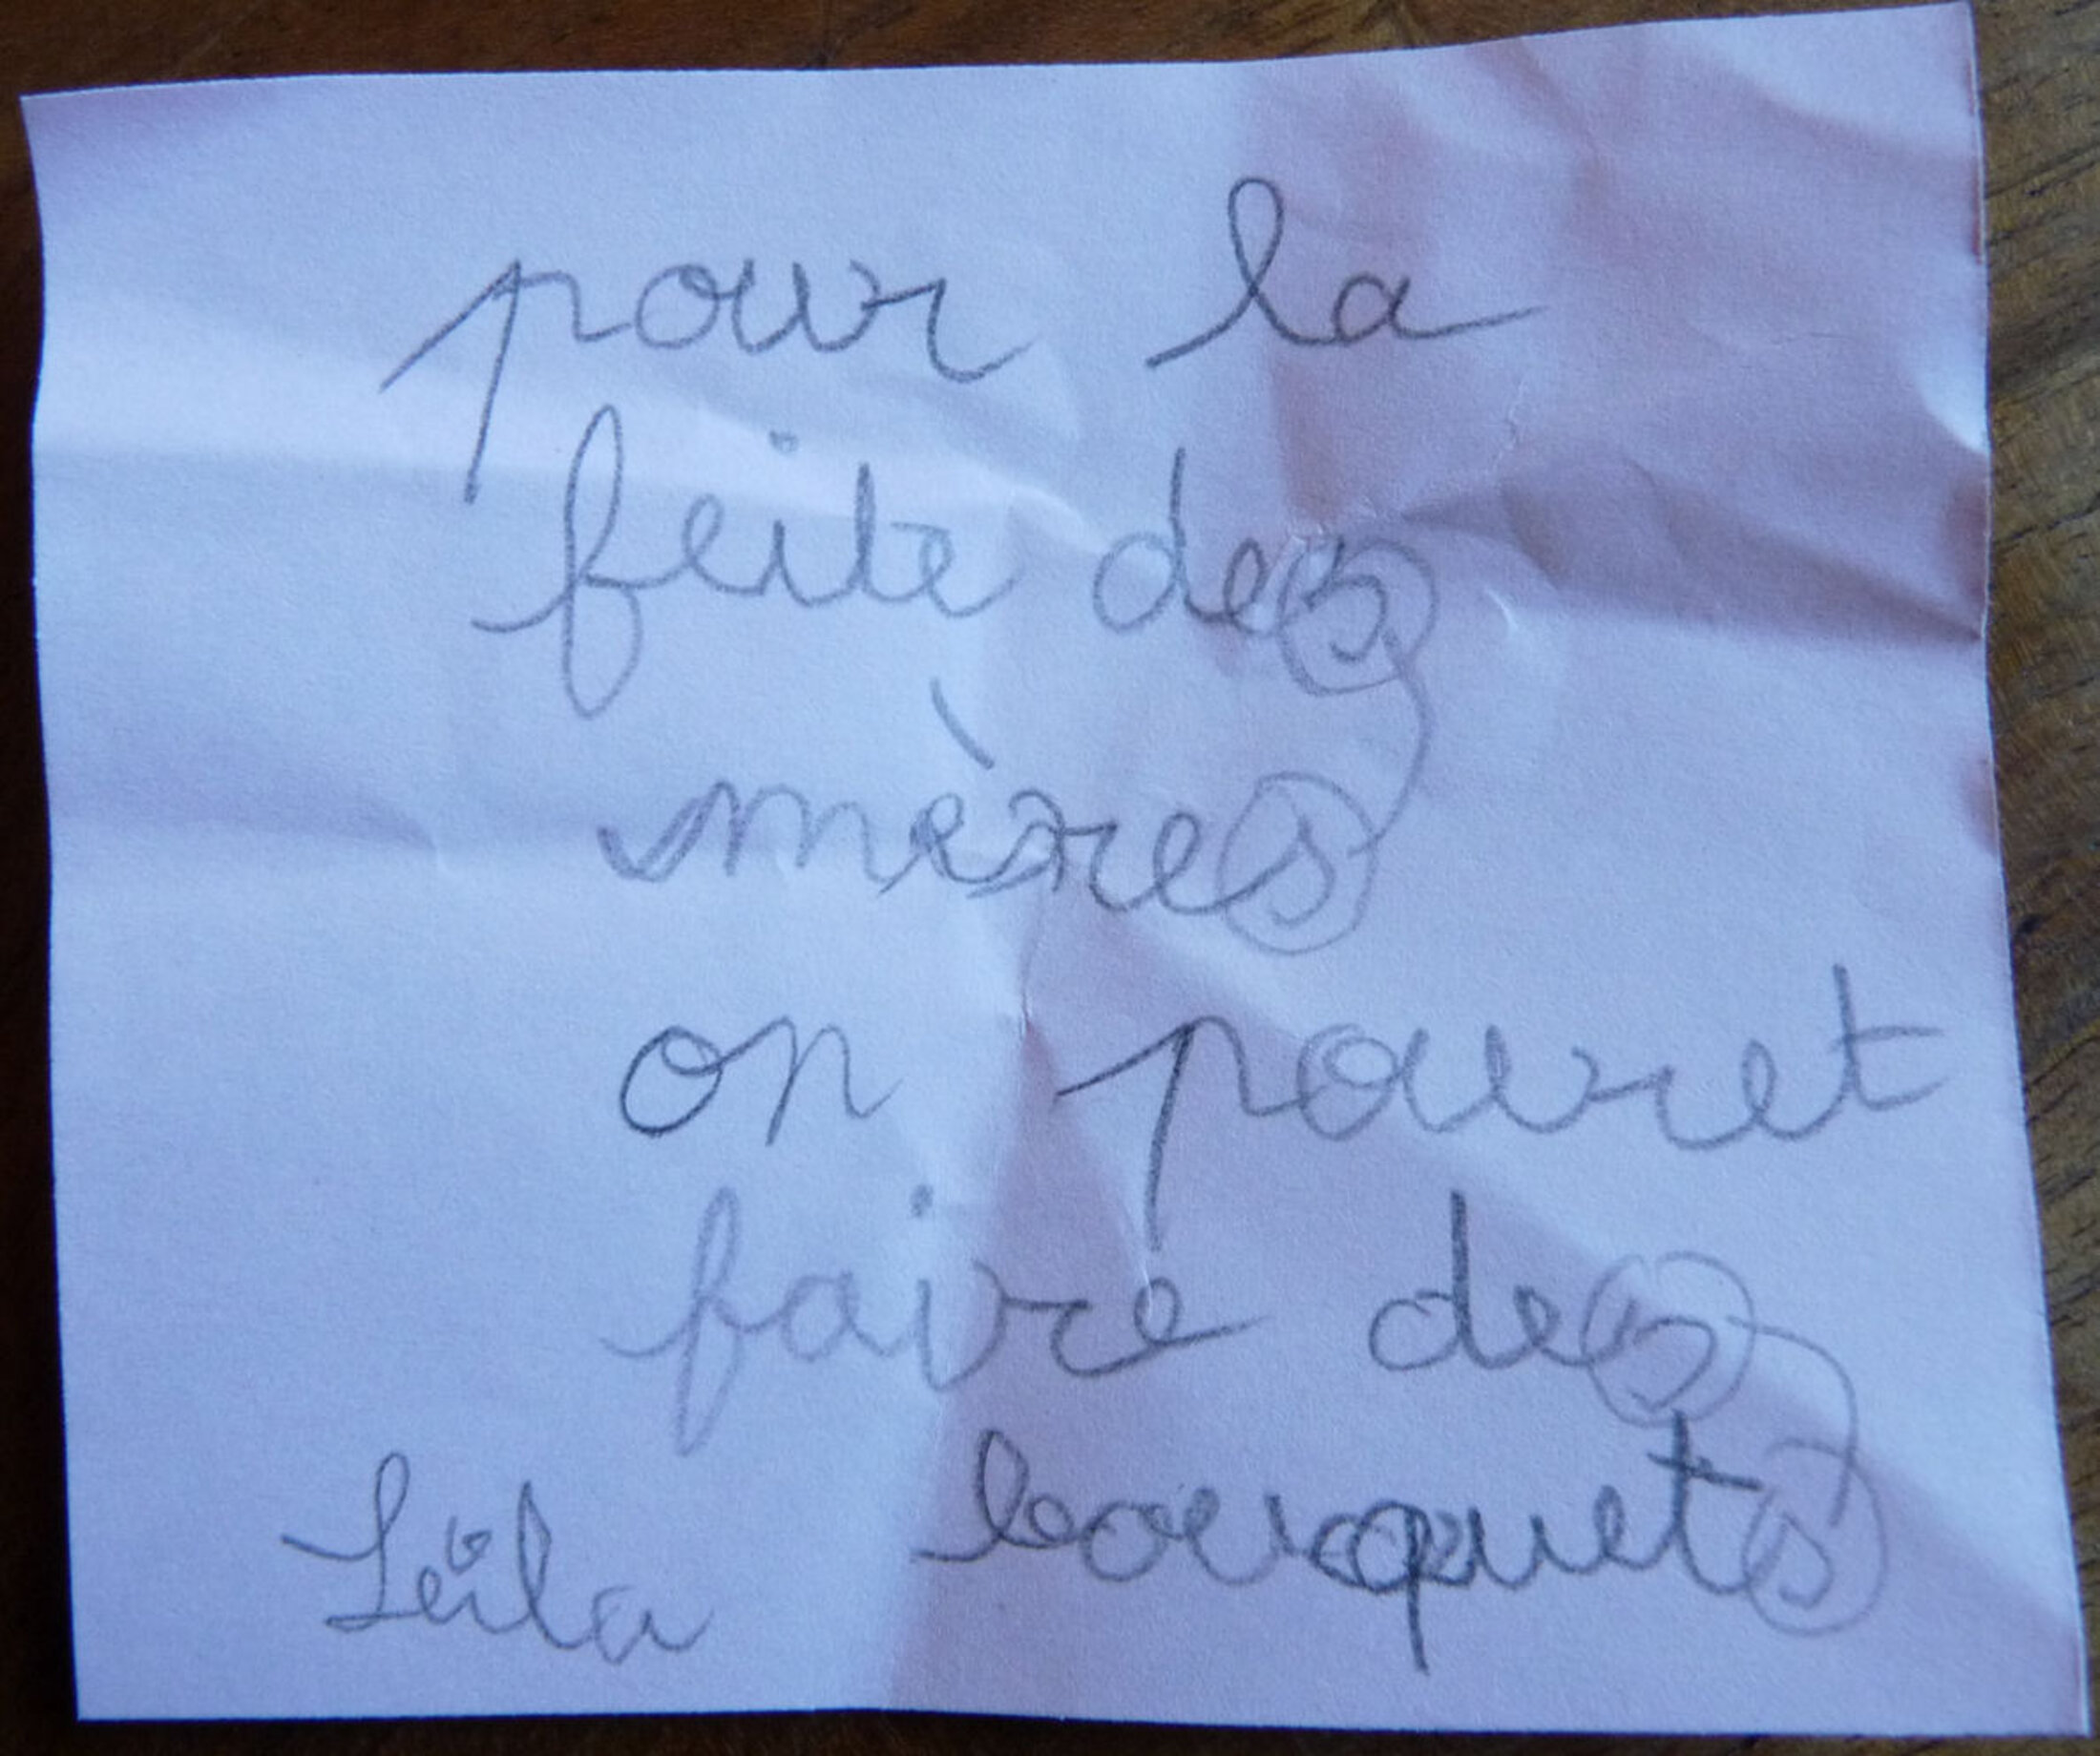 pour la
feite des
mères
on pouret
faire des
bouquets
Leïla